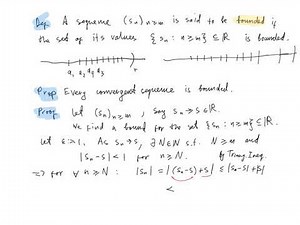 Def A sequence (sₙ)ₙ≥ₘ is said to be bounded if
the set of its values {sₙ : n≥m} ⊆ ℝ is bounded.
a₁ a₂ a₃
Prop Every convergent sequence is bounded.
Proof Let (sₙ)ₙ≥ₘ, say sₙ→s∈ℝ.
We find a bound for the set {sₙ : n≥m} ⊆ ℝ.
Let ε=1. As sₙ→s, ∃N∈ℕ s.t. N≥m and
|sₙ-s|<1 for n≥N. by Triang. Ineq.
⇒ for ∀ n≥N: |sₙ| = |(sₙ-s)+s| ≤ |sₙ-s|+|s|
<